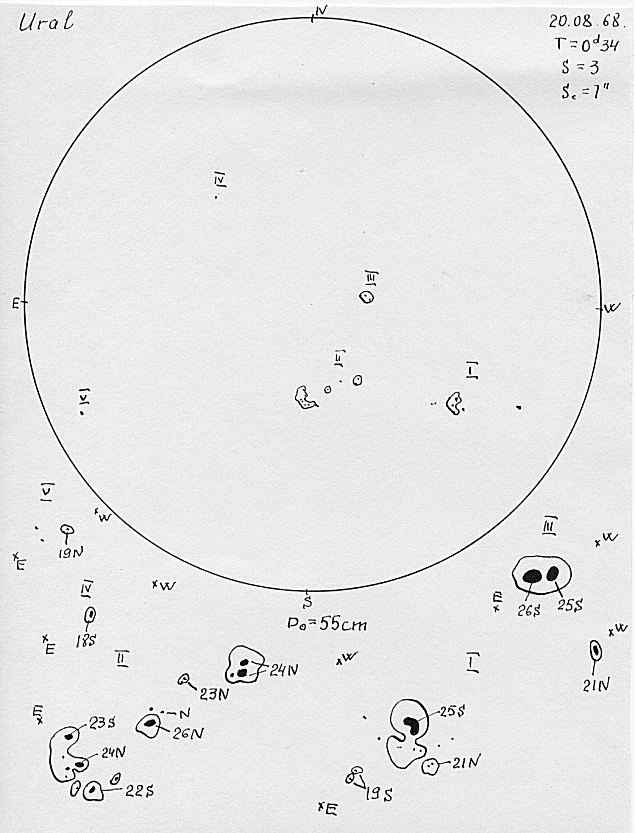 Ural
20.08.68.
T=0ᵈ34
S=3
Sc=7"
IV
IV
III
E
W
II
I
V
S
D₀=55cm
V
W
19N
E
III
W
E
26S
25S
IV
W
18S
E
II
24N
23N
W
I
W
21N
E
23S
N
26N
24N
22S
25S
21N
19S
E